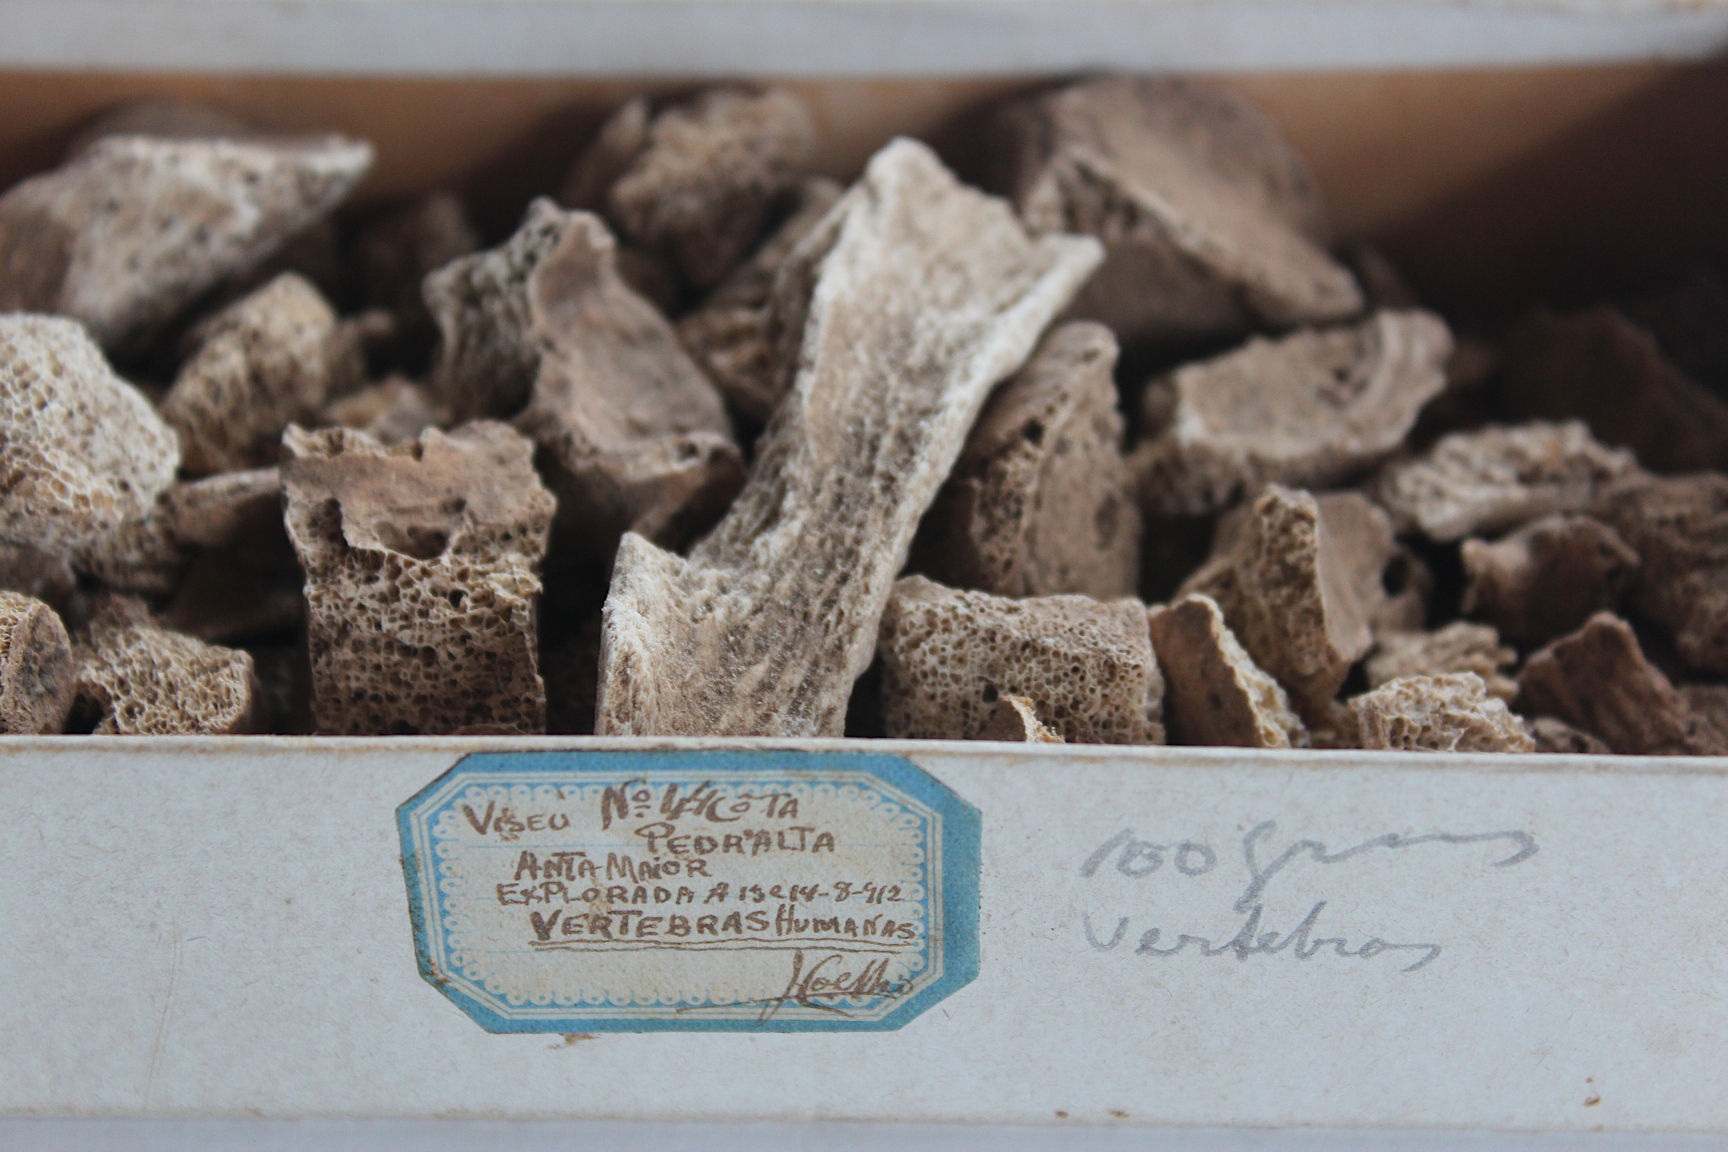 Viseu Nº 44 Côta
Pedr'alta
Anta Maior
Explorada a 13 e 14-8-912
Vertebras Humanas
JCoelho
100 grms
vertebras